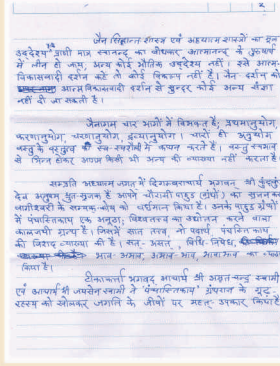 २
जैन सिद्धान्त शास्त्र एवं अध्यात्म शास्त्रों का मूल
उद्देश्य प्राणी मात्र स्वानन्द का बोधकर आत्मानन्द के पुरुषार्थ
में लीन हो जाय, अन्य कोई भौतिक उद्देश्य नहीं। इसे आत्म-
विकासवादी दर्शन कहें तो कोई विकल्प नहीं है। जैन दर्शन को
आत्म विकासवादी दर्शन से सुन्दर कोई अन्य संज्ञा
नहीं दी जा सकती है।
जैनागम चार भागों में विभक्त है; प्रथमानुयोग,
करणानुयोग, चरणानुयोग, द्रव्यानुयोग। चारों ही अनुयोग
वस्तु के वस्तुत्व की स्व-स्वशैली में कथन करते हैं। वस्तु स्वभाव
से भिन्न होकर आगम किसी भी अन्य की व्याख्या नहीं करता है।
सम्प्रति अध्यात्म जगत् में दिगम्बराचार्य भगवन् श्री कुंदकुंद
देव अनुपम श्रुत-सृजक हैं आपने चौरासी पाहुड (ग्रंथों) का सृजनकर
वागीश्वरी के सम्यक् कोष को वर्धमान किया है। उनके पाहुड ग्रंथों
में पंचास्तिकाय एक अनूठा, विश्वतत्त्व का उद्योतन करने वाला
कालजयी ग्रन्थ है। जिसमें सात तत्त्व, नौ पदार्थ, पंचास्तिकाय
की विशद व्याख्या की है। सत्-असत्, विधि-निषेध,
भाव-अभाव, अभाव-भाव, भावाभाव का
किया है।
टीकाकर्ता भगवद् आचार्य श्री अमृतचन्द्र स्वामी
एवं आचार्य श्री जयसेन स्वामी ने 'पंचास्तिकाय' ग्रंथराज के गूढ़
रहस्य को खोलकर जगति के जीवों पर महत्-उपकार किया है